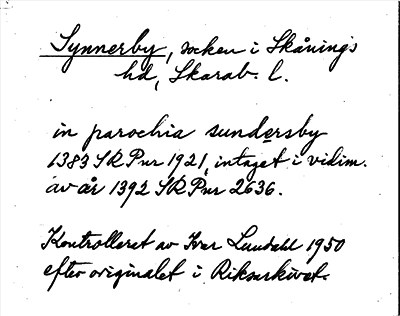 Synnerby, socken i Skånings
hd, Skarab. l.
in parochia sundersby
1383 SRPnr 1921, intaget i vidim.
av år 1392 SRPnr 2636.
Kontrolleret av Ivar Lundahl 1950
efter originalet i Riksarkivet.